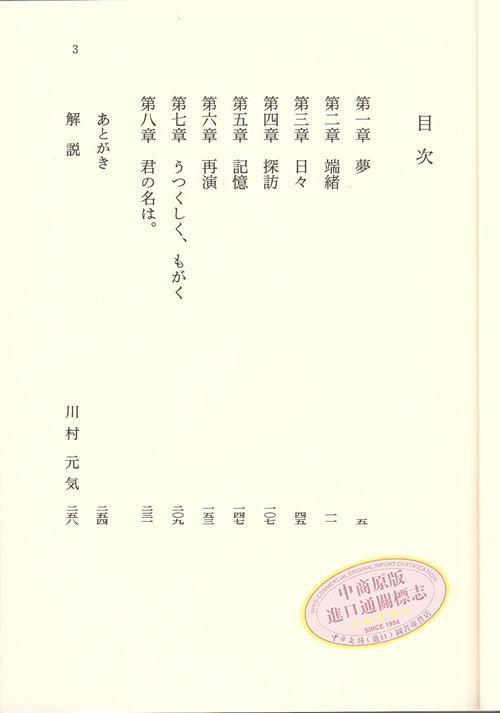 3
目次
第一章 夢 五
第二章 端緒 一一
第三章 日々 四五
第四章 探訪 一〇七
第五章 記憶 一四七
第六章 再演 一五三
第七章 うつくしく、もがく 二〇九
第八章 君の名は。 二三一
あとがき 二五四
解説 川村元気 二五八
SUNG COMMERCIAL ORIGINAL IMPORT CERTIFICATION
中商原版
進口通關標志
SINCE 1954
中华商務(進口)圖書專賣店